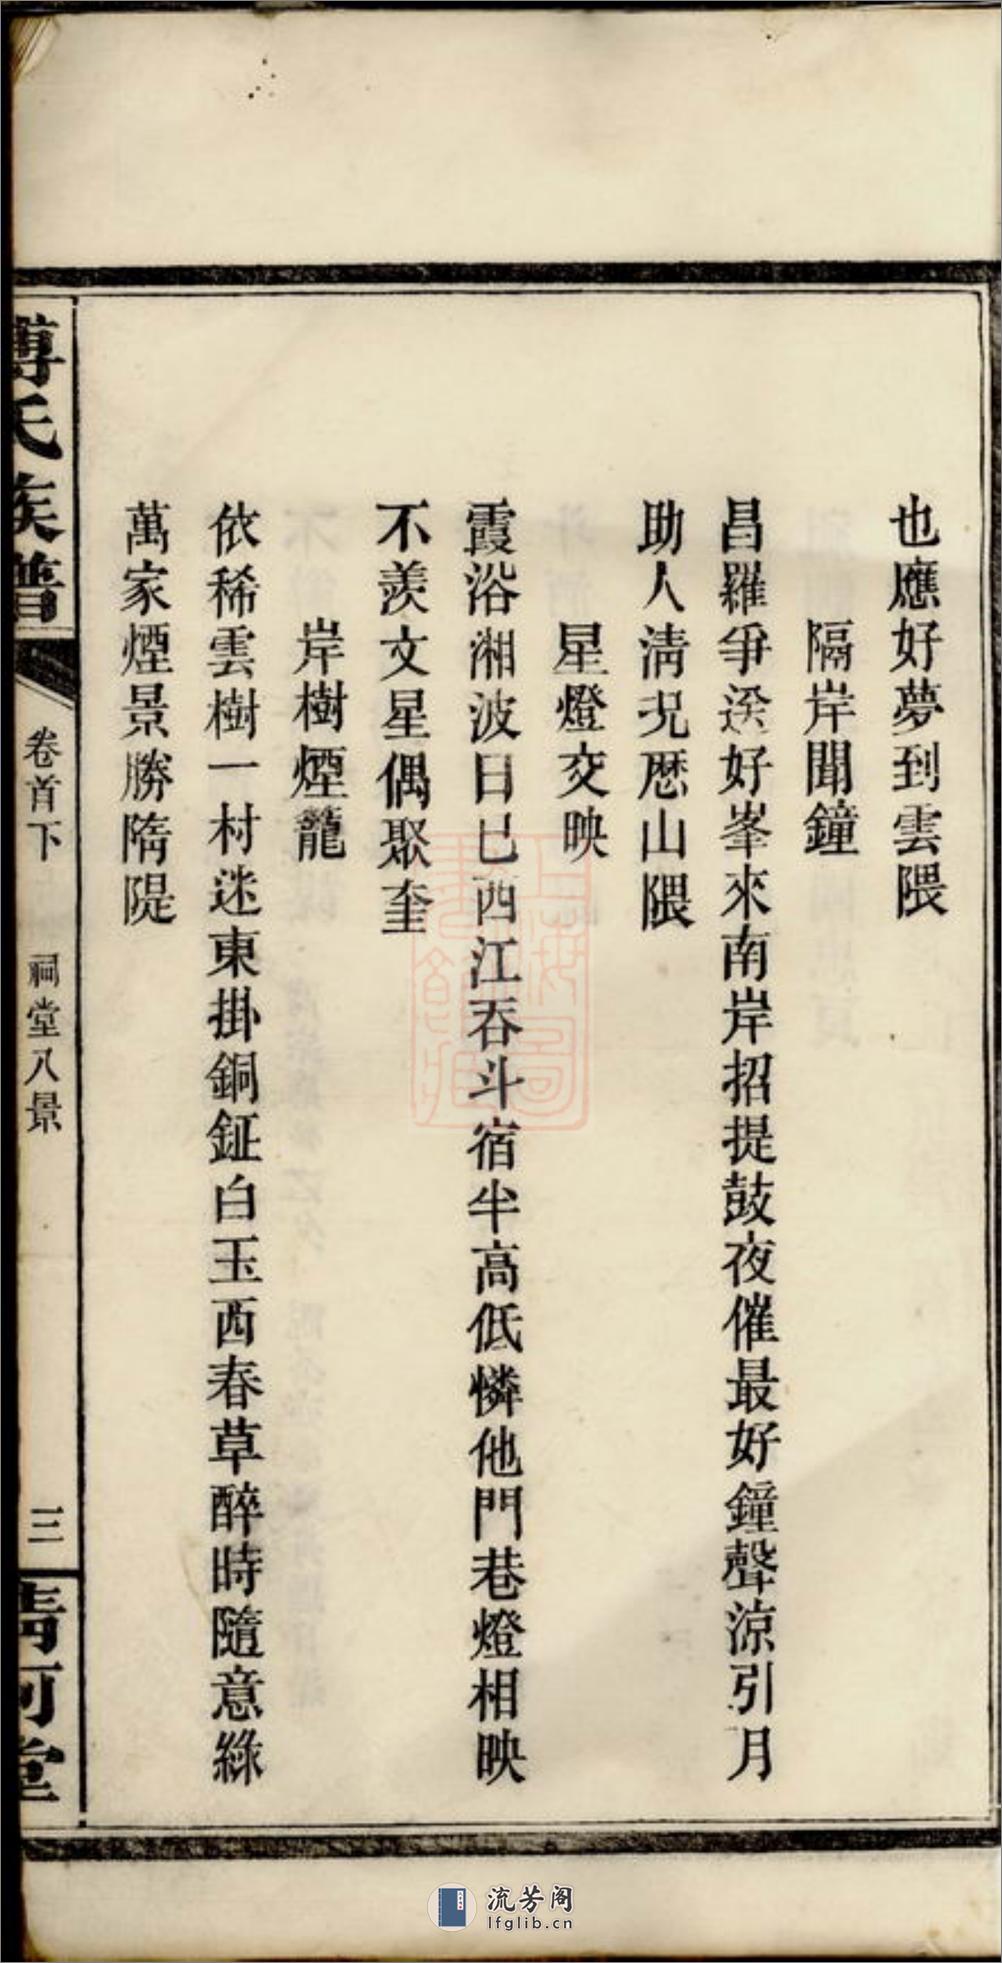 也應好夢到雲隈
隔岸聞鐘
昌羅爭送好峯來南岸招提鼓夜催最好鐘聲涼引月
助人淸況歷山隈
星燈交映
霞浴湘波日已西江吞斗宿半高低憐他門巷燈相映
不羨文星偶聚奎
岸樹煙籠
依稀雲樹一村迷東掛銅鉦白玉西春草醉時隨意綠
萬家煙景勝隋隄
氏族譜
卷首下
祠堂八景
三
河堂
上海圖書館藏
流芳阁
lfglib.cn